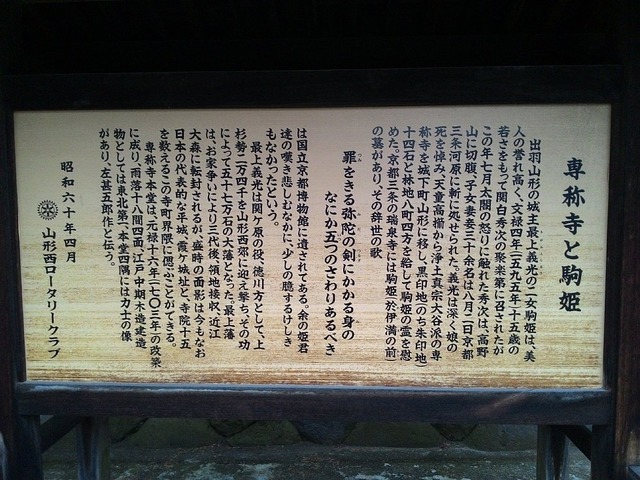 専称寺と駒姫
出羽山形の城主最上義光の二女駒姫は、美
人の誉れ高く、文禄四年(一五九五年)十五歳の
若さをもって関白秀次の聚楽第に召されたが
この年七月太閤の怒りに触れた秀次は、高野
山に切腹、子女妻妾三十余名は八月二日京都
三条河原に斬に処せられた。義光は深く娘の
死を悼み、天童高擶から浄土真宗大谷派の専
称寺を城下町山形に移し、黒印地(のち朱印地)
十四石と林地八町四方を給して駒姫の霊を慰
めた。京都三条の瑞泉寺には駒姫(於伊満の前)
の墓があり、その辞世の歌
罪をきる弥陀の剣にかかる身の
なにか五つのさわりあるべき
は国立京都博物館に遺されてある。余の姫君
達の嘆き悲しむなかに、少しの臆するけしき
もなかったという。
最上義光は関ヶ原の役、徳川方として、上
杉勢二万四千を山形西郊に迎え撃ち、その功
によって五十七万石の大藩となった。最上藩
は、お家争いにより三代後、領地接収、近江
大森に転封されるが、盛時の面影は今もなお
日本の代表的な平城、霞ヶ城址と、寺院十五
を数えるこの寺町界隈に偲ぶことができる。
専称寺本堂は、元禄十六年(一七〇三年)の改築
に成り、雨落十八間四面、江戸中期木造建造
物としては東北第一、本堂四隅には力士の像
があり、左甚五郎作と伝う。
昭和六十年四月
山形西ロータリークラブ